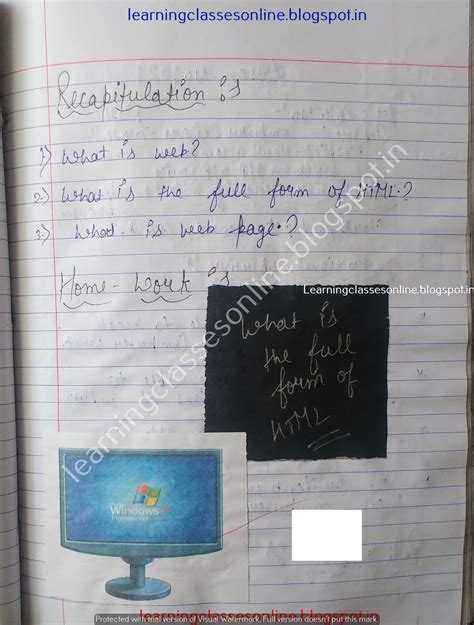 learningclassesonline.blogspot.in
Recapitulation :-
1) What is web?
2) What is the full form of HTML?
3) What is web page?
Home-Work :-
Learningclassesonline.blogspot.in
What is
the full
form of
HTML
learningclassesonline.blogspot.in
Windows xp
Professional
Protected with trial version of Visual Watermark. Full version doesn't put this mark.
learningclassesonline.blogspot.in